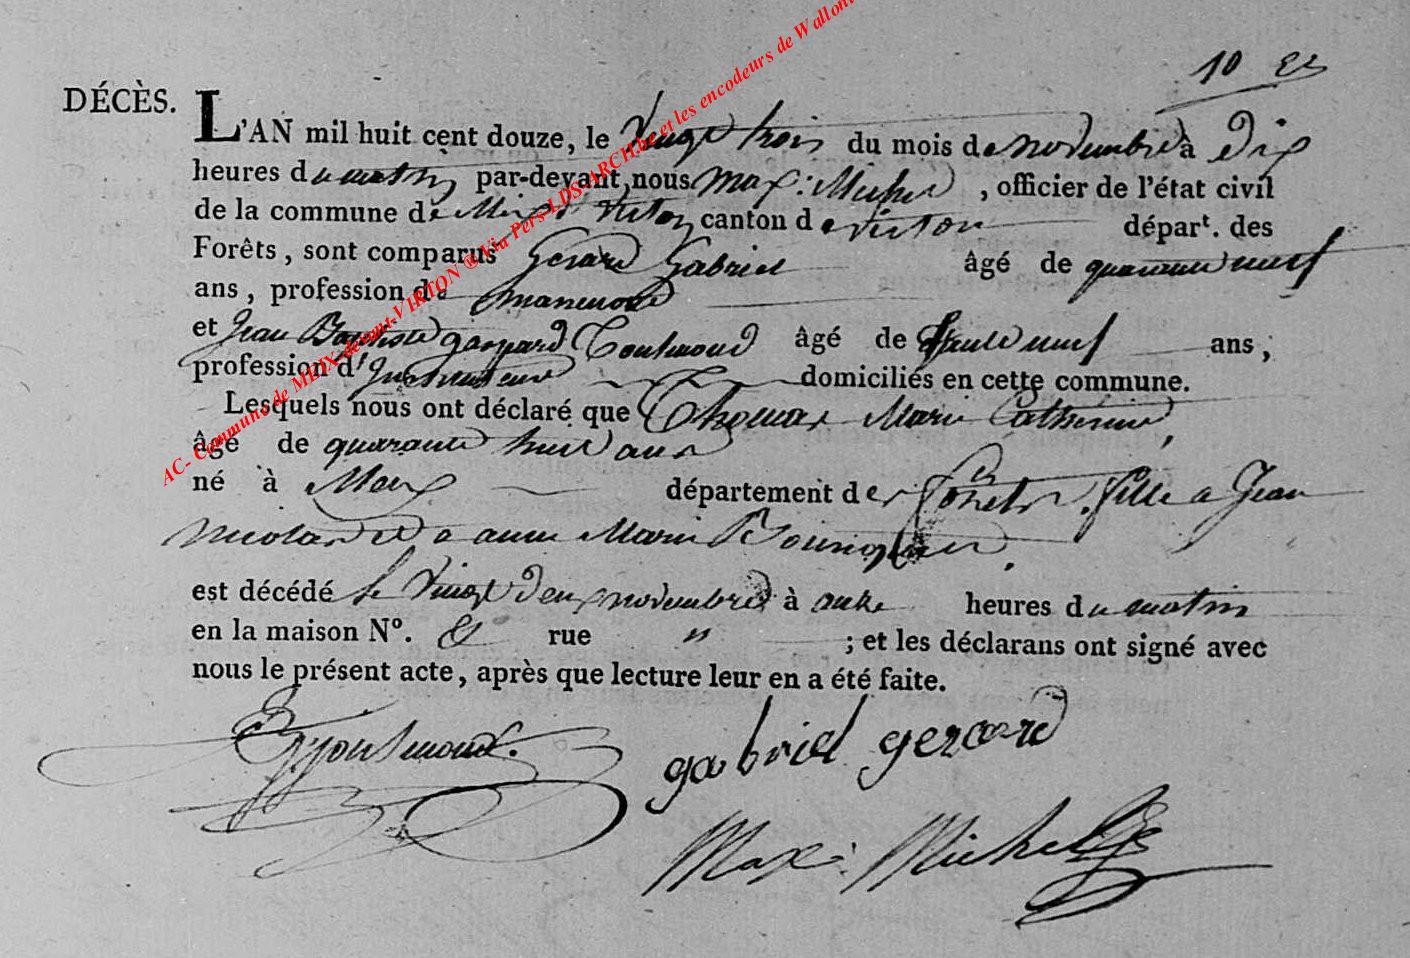 10
DÉCÈS.
L'AN mil huit cent douze, le Vingt trois du mois de novembre à Dix
heures du matin par-devant nous Max: Michel , officier de l'état civil
de la commune de Meix dt Virton canton de virton départ. des
Forêts , sont comparus Gerard Gabriel âgé de quarante neuf
ans , profession de manouvre
et Jean Baptiste gaspard Toutmond âgé de trente neuf ans ,
profession d' Instituteur domiciliés en cette commune.
Lesquels nous ont déclaré que Thomas Marie Catherine,
âgé de quarante huit ans
né à Meix département des forets, fille a Jean
Nicolas et a anne Marie
est décédé le Vingt deux novembre à onze heures du matin
en la maison N°. rue " ; et les déclarans ont signé avec
nous le présent acte , après que lecture leur en a été faite.
gabriel gerard
Max: Michel
AC- Commune de MEIX-devant-VIRTON ® via Pers-LDS-ARCH.be et les encodeurs de Walloni